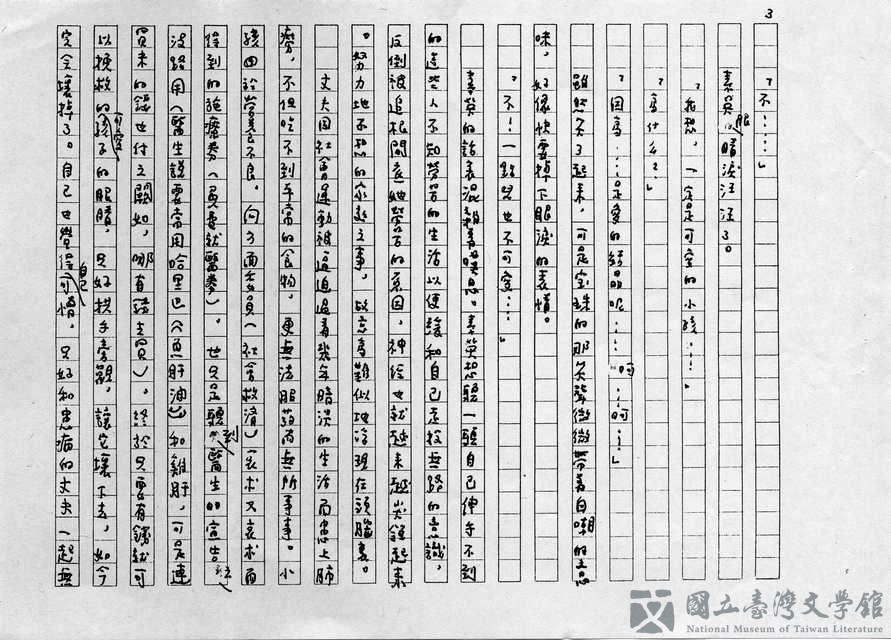 3
「不！……」
素英眼睛淚汪汪了。
「我想，一定是可愛的小孩……」
「為什么？」
「因為……是愛的結晶呢……呵……呵……」
雖然笑了起來，可是寶珠的那笑聲微微帶著自嘲的意
味，好像快要掉下眼淚的表情。
「不！一點兒也不可愛……」
素英的話裏混淆著嘆息。素英想聽一聽自己伸手不到
的這些人不知勞苦的生活以便緩和自己走投無路的意識，
反倒被追根問底她勞苦的原因，神經也就越來越尖銳起來
。努力地不想的家裏之事，故意為難似地浮現在頭腦裏。
丈夫因社會運動被逼迫過著幾年暗淡的生活而患上肺
癆，不但吃不到平常的食物，更無法服藥而無所事事。小
孩由於營養不良。向方面委員（社會救濟）哀求又哀求而
得到的施療券（免費就醫券）。也只是聽到醫生的宣告註
沒路用（醫生說要常用哈里巴（魚肝油）和雞肝，可是連
買米的錢也付之闕如，哪有錢去買）。終於只要有錢就可
以挽救的可愛孩子的眼睛，只好拱手旁觀，讓它壞下去，如今
完全壞掉了。自己也覺得自己可憎，只好和患病的丈夫一起無
國立臺灣文學館
National Museum of Taiwan Literature